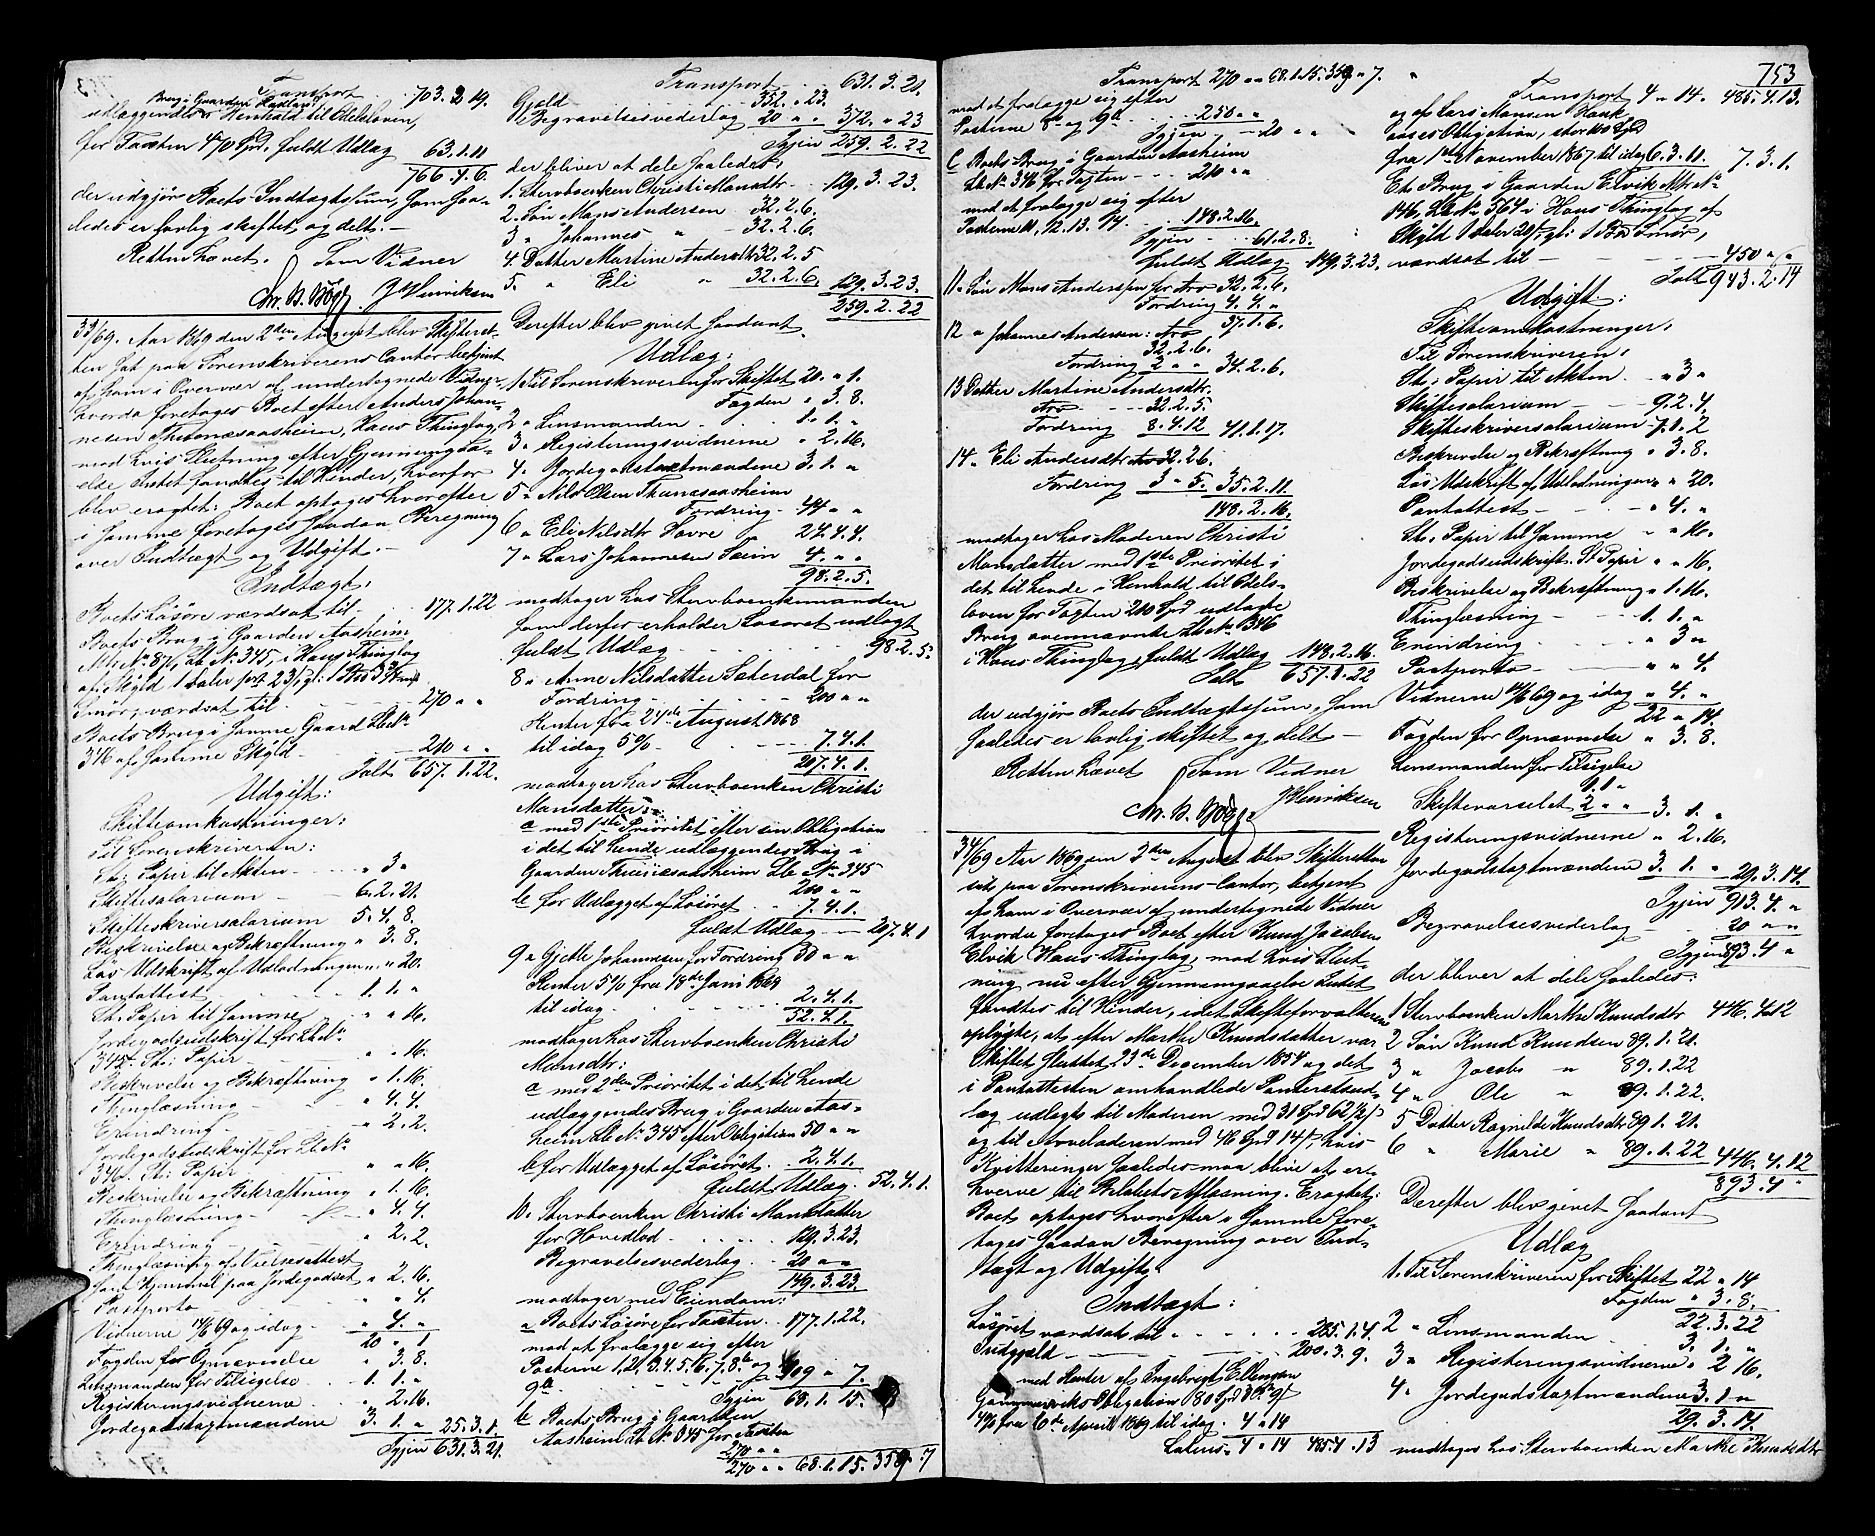 Transport . . 703. 2. 19.
Brug i Gaarden Hadland
udlæggendtes i Henhold til Odelsloven,
for Taxten 470 Spd, fuldt Udlæg 63. 1. 11
766. 4. 6.
der udgjør Boets Indtægtssum, som saa-
ledes er lovlig skiftet og delt. —
Retten hævet. Som Vidner
J Henriksen
33/69. Aar 1869 den 2den August blev Skifteret-
ten sat paa Sorenskriverens Contor betjent
af ham i Overvær af undertegnede Vidner,
hvorda foretoges Boet efter Anders Johan-
nesen Thunesaasheim, Haus Thinglag,
med hvis Slutning efter Gjennemgaa-
else Intet fandtes til Hinder, hvorfor
blev eragtet: Boet optages hvorefter
i samme foretoges saadan Beregning
over Indtægt og Udgift. —
Indtægt:
Boets Løsøre værdsat til . . 177. 1. 22
Boets Brug i Gaarden Aasheim
Mtr. No 87, Lb. No 345, i Haus Thinglag
af Skyld 1 Daler
Smør, værdsat til . . 270 " "
Boets Brug i samme Gaard Lb. No
346 af samme Skyld . . 210 " "
Ialt 657. 1. 22.
Udgift:
Skifteomkostninger:
Til Sorenskriveren:
St: Papir til Akten . . " 3 "
Skiftesalarium — 6. 2. 21.
Skifteskriversalarium 5. 4. 8.
Beskrivelse og Bekræftning " 3. 8.
Løs Udskrift af Udlodningen " " 20.
Pantattest . . 1. 1. "
St. Papir til samme " " 16.
Jordegodsudskrift for Lb. No
345. St: Papir " " 16.
Beskrivelse og Bekræftning " 1. 16.
Thinglæsning " 4. 4.
Erindring " 2. 2.
Jordegodsudskrift for Lb. No
346. St: Papir " " 16.
Beskrivelse og Bekræftning " 1. 16.
Thinglæsning — " 4. 4.
Erindring " 2. 2.
Thinglæsning af Vielsesattest
som Hjemmel paa Jordegodset " 2. 16.
Postporto " " 4.
Vidnerne 14/6 69 og idag — " 4. "
20 " 1
Fogden for Opnævnelse " 3. 8.
Lensmanden for Tilsigelse . . 1. 1. "
Registeringsvidnerne . . " 2. 16.
Jordegodstaxtmændene 3. 1. " 25. 3. 1.
Igjen 631. 3. 21.
Transport . . 631. 3. 21.
Gjeld 352. " 23.
Begravelsesvederlag 20 " " 372. " 23
Igjen 259. 2. 22
der bliver at dele saaledes:
1. Stervboenken Christi Monsdtr. . . 129. 3. 23.
2. Søn Mons Andersen 32. 2. 6.
3 " Johannes " 32. 2. 6.
4. Datter Martine Andersdtr 32. 2. 5
5. " Eli " 32. 2. 6. 129. 3. 23.
259. 2. 22
Derefter blev givet saadant
Udlæg:
1. Til Sorenskriveren for Skiftet 20. " 1.
Fogden " 3. 8.
2 " Lensmanden . . 1. 1. "
3. " Registeringsvidnerne " 2. 16.
4. " Jordegodstaxtmændene 3. 1. "
5 " Nils Olsen Thunesaasheim
Fordring — 44 " "
6 " Eli Nilsdtr Havre " 27. 4. 4.
7 " Lars Johannesen Seim 4. " "
98. 2. 5.
modtager hos Stervboenkemanden
som derfor erholder Løsøret udlagt
fuldt Udlæg . . 98. 2. 5.
8 " Anne Nilsdatter Sæterdal for
Fordring . . 200 " "
Renter fra 24de August 1868
til idag 5% . . 7. 4. 1.
207. 4. 1.
modtager hos Stervboenken Christi
Monsdatter:
a med 1ste Prioritet efter sin Obligation
i det til hende udlæggendes Brug i
Gaarden Thunesaasheim Lb No 345
200 " "
b for Udlægget af Løsøret . . 7. 4. 1.
fuldt Udlæg — 207. 4. 1
9 " Gjetle Johannesen for Fordring 50 " "
Renter 5% fra 18de Juni 1868
til idag . . 2. 4. 1.
52. 4. 1.
modtager hos Stervboenken Christi
Monsdtr:
a med 2den Prioritet i det til hende
udlæggendes Brug i Gaarden Aas-
heim Lb No 345 efter Obligation 50 " "
b for Udlægget af Løsøret . . 2. 4. 1.
fuldt Udlæg. 52. 4. 1.
10. Stervboenken Christi Monsdatter
for Hovedlod . . 129. 3. 23.
Begravelsesvederlag . . 20 " "
149. 3. 23.
modtager med Eiendom:
a Boets Løsøre for Taxten . . 177. 1. 22.
mod at fralægge sig efter
Posterne 1, 2, 3. 4. 5. 6. 7. 8b og
9b . . 109 " 7.
Igjen 68. 1. 15.
b Boets Brug i Gaarden
Aasheim Lb No 345 for Taxten
270 " "
270 " " 68. 1. 15. 359. " 7
Transport 270 " " 68. 1. 15. 359 " 7.
mod at fralægge sig efter
Posterne 8a og 9a . . 250 " "
Igjen — 20 " "
c Boets Brug i Gaarden Aasheim
Lb No 346 for Taxten — 210 " "
mod at fralægge sig efter
Posterne 11, 12. 13. 14. 148. 2. 16.
Igjen — 61. 2. 8.
fuldt Udlæg — 149. 3. 23.
11. Søn Mons Andersen for Arv 32. 2. 6.
Fordring 4. 4. "
37. 1. 6.
12 " Johannes Andersen: Arv
32. 2. 6.
Fordring 2 " " 34. 2. 6.
13 Datter Martine Andersdtr.
Arv — 32. 2. 5.
Fordring 8. 4. 12 41. 1. 17.
14. Eli Andersdtr Arv 32. 2 6.
Fordring 3 " 5. 35. 2. 11.
148. 2. 16.
modtager hos Moderen Christi
Monsdatter med 1ste Prioritet i
det til hende i Henhold til Odels-
loven for Taxten 210 Spd udlagte
Brug ovennævnte Lb No 346
i Haus Thinglag, fuldt Udlæg 148. 2. 16.
Ialt 657. 1. 22
der udgjør Boets Indtægtssum, som
saaledes er lovlig skiftet og delt —
Retten hævet Som Vidner
J Henriksen
34/69 Aar 1869 den 2den August blev Skifteretten
sat paa Sorenskriverens Contor, betjent
af ham i Overvær af undertegnede Vidner
hvorda foretoges Boet efter Knud Jacobsen
Elvik Haus Thinglag, med hvis Slut-
ning, nu efter Gjennemgaaelse Intet
fandtes til Hinder, idet Skifteforvalteren
oplyste, at efter Marthe Knudsdatter var
Skiftet sluttet 23de December 1854 og det
i Pantattesten omhandlede Panteretsud-
læg udlagts til Moderen med 31 Spd 62 1/2 ß
og til Arveladeren med 46 Spd 14 ß, hvis
Kvitteringer saaledes maa blive at er-
hverve til Beløbets Aflæsning. Eragtet:
Boet optages hvorefter i samme fore-
toges saadan Beregning over Ind-
tægt og Udgift.
Indtægt:
Løsøret værdsat til . . 285. 1. 4.
Indgjeld — 200. 3. 9.
med Renter af Ingebrigt Ellingsen
Gammersviks Obligation
4% fra 6te April 1869 til idag. 4 " 14
Lateris 4 " 14 485. 4. 13
753
Transport 4 " 14. 485. 4. 13.
og af Lars Monsen Hauk-
aases Obligation, stor 100 Spd
fra 1ste November 1867 til idag 6. 3. 11. 7. 3. 1.
Et Brug i Gaarden Elvik Mtr No
146, Lb No 364 i Haus Thinglag af
Skyld 1 Daler
værdsat til . . 450 " "
Ialt 943. 2. 14
Udgift:
Skifteomkostninger:
Til Sorenskriveren:
St: Papir til Akten . . " 3 "
Skiftesalarium — 9. 2. 4.
Skifteskriversalarium 7. 1. 2
Beskrivelse og Bekræftning " 3. 8.
Løs Udskrift af Udlodningen " " 20.
Pantattest — " 4. "
St. Papir til samme " " 16.
Jordegodsudskrift. St Papir " " 16.
Beskrivelse og Bekræftning " 1. 16.
Thinglæsning — 1. 1. "
Erindring . . " 3 "
Postporto — " " 4.
Vidnerne 14/6 69 og idag " 4. "
22 " 14.
Fogden for Opnævnelse " 3. 8.
Lensmanden for Tilsigelse
1. 1 "
Skiftevarselet 2 " " 3. 1. "
Registeringsvidnerne " 2. 16.
Jordegodstaxtmændene 3. 1. " 29. 3. 14.
Igjen 913. 4. "
Begravelsesvederlag — 20 " "
Igjen 893. 4 "
der bliver at dele saaledes:
1 Stervboenken Marthe Knudsdtr 446. 4. 12
2 Søn Knud Knudsen 89. 1. 21.
3 " Jacob " 89. 1. 22
4 " Ole " 89. 1. 22.
5 Datter Ragnilde Knudsdtr 89. 1. 21.
6 " Marie " 89. 1. 22 446. 4. 12
893. 4 "
Derefter blev givet saadant
Udlæg
1. Til Sorenskriveren for Skiftet 22 " 14
Fogden " 3. 8.
22. 3. 22
2 " Lensmanden . . 3. 1. "
3 " Registeringsvidnerne " 2 16.
4. " Jordegodstaxtmændene 3. 1. "
29. 3. 14.
modtager hos Stervboenken Marthe Knudsdtr